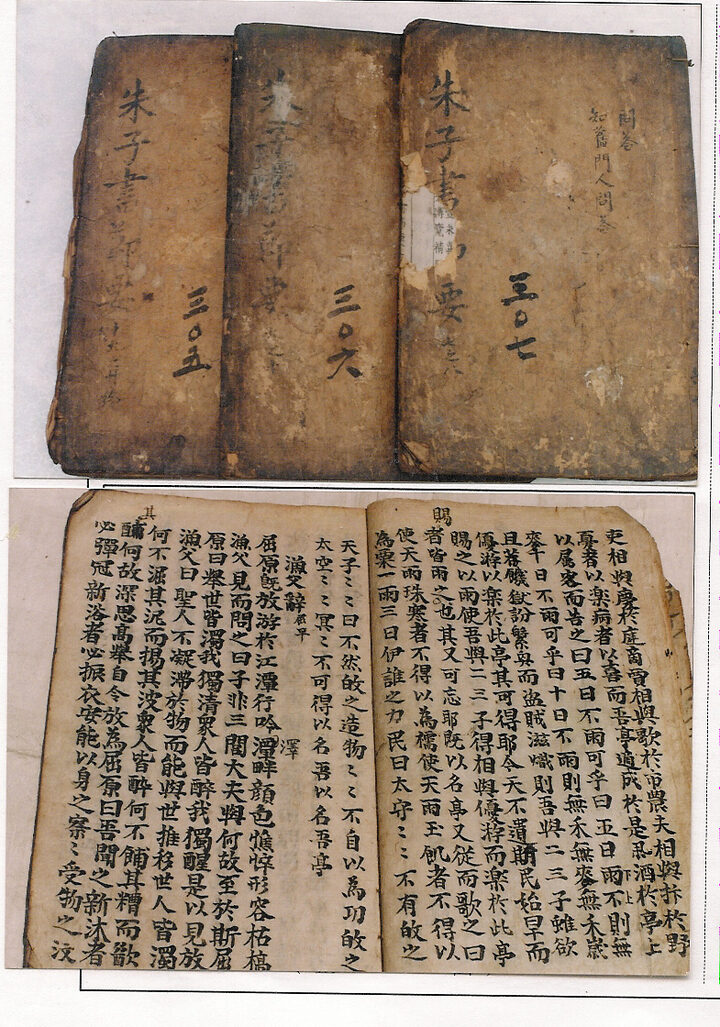 問答
知舊門人問答
朱子書節要
三〇七
朱子書節要
三〇六
朱子書節要
三〇五
吏相與慶於庭商賈相與歌於市農夫相與抃於野
憂者以楽病者以喜而吾亭適成於是酒於亭上
以属客而告之曰五日不雨可乎曰五日雨不則無
麥十日不雨可乎曰十日不雨則無禾無麥無禾歲
且荐饑獄訟繁興而盜賊滋熾則吾與二三子雖欲
優游以楽於此亭其可得耶今天不遺斯民始旱而
賜之以雨使吾與二三子得相與優游而楽於此亭
賜
者皆雨之也其又可忘耶既以名亭又從而歌之曰
使天雨珠寒者不得以為襦使天雨玉飢者不得以
為粟一雨三日伊誰之力民曰太守〻〻不有皈之
天子〻〻曰不然皈之造物〻〻不自以為功皈之
太空〻〻冥〻不可得以名吾以名吾亭
漁父辭 屈平
屈原既放游於江潭行吟澤畔顏色憔悴形容枯槁
澤
漁父見而問之曰子非三閭大夫與何故至於斯屈
原曰擧世皆濁我獨清衆人皆醉我獨醒是以見放
漁父曰聖人不凝滯於物而能與世推移世人皆濁
何不淈其泥而揚其波衆人皆醉何不餔其糟而歠
其
醨何故深思高擧自令放為屈原曰吾聞之新沐者
必彈冠新浴者必振衣安能以身之察〻受物之汶